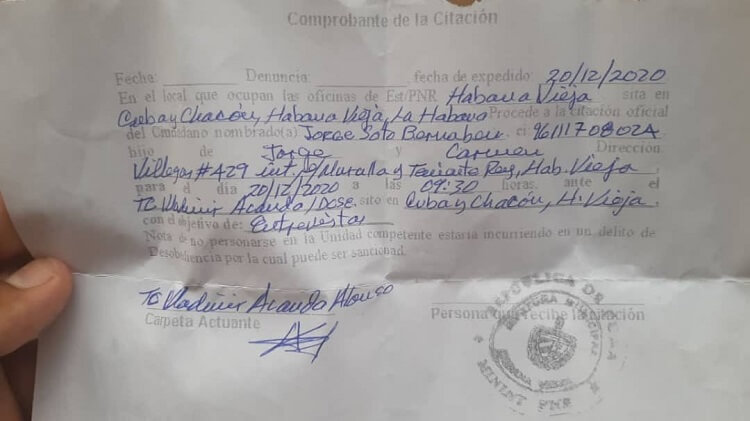 Comprobante de la Citación
Fecha: Denuncia: fecha de expedido: 20/12/2020
En el local que ocupan las oficinas de Est/PNR Habana Vieja sita en
Cuba y Chacón, Habana Vieja, La Habana Procede a la citación oficial
del Ciudadano nombrado(a) Jorge Soto ci: 96111708024
hijo de Jorge y Carmen Dirección
Villegas #429 int. e/ Muralla y Teniente Rey, Hab. Vieja
para el día 20/12/2020 a las 09:30 horas, ante el
TC Vladimir Acanda/DOSE, sito en Cuba y Chacón, H. Vieja,
con el objetivo de: Entrevistar
Nota de no personarse en la Unidad competente estaría incurriendo en un delito de
Desobediencia por la cual puede ser sancionad.
TC Vladimir Acanda Alonso
Carpeta Actuante
Persona que recibe la citación
REPÚBLICA DE CUBA
JEFATURA MUNICIPAL
HABANA VIEJA
MININT PNR